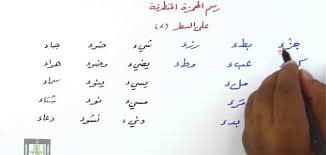 رسم الهمزة المتطرفة
على السطر (ء)
جزء بطء رزء شيء ضوء جاء
عبء وطء يضيء وضوء هراء
ملء يسيء ينوء سماء
مسيء نوء شتاء
بدء دنيء نشوء دعاء